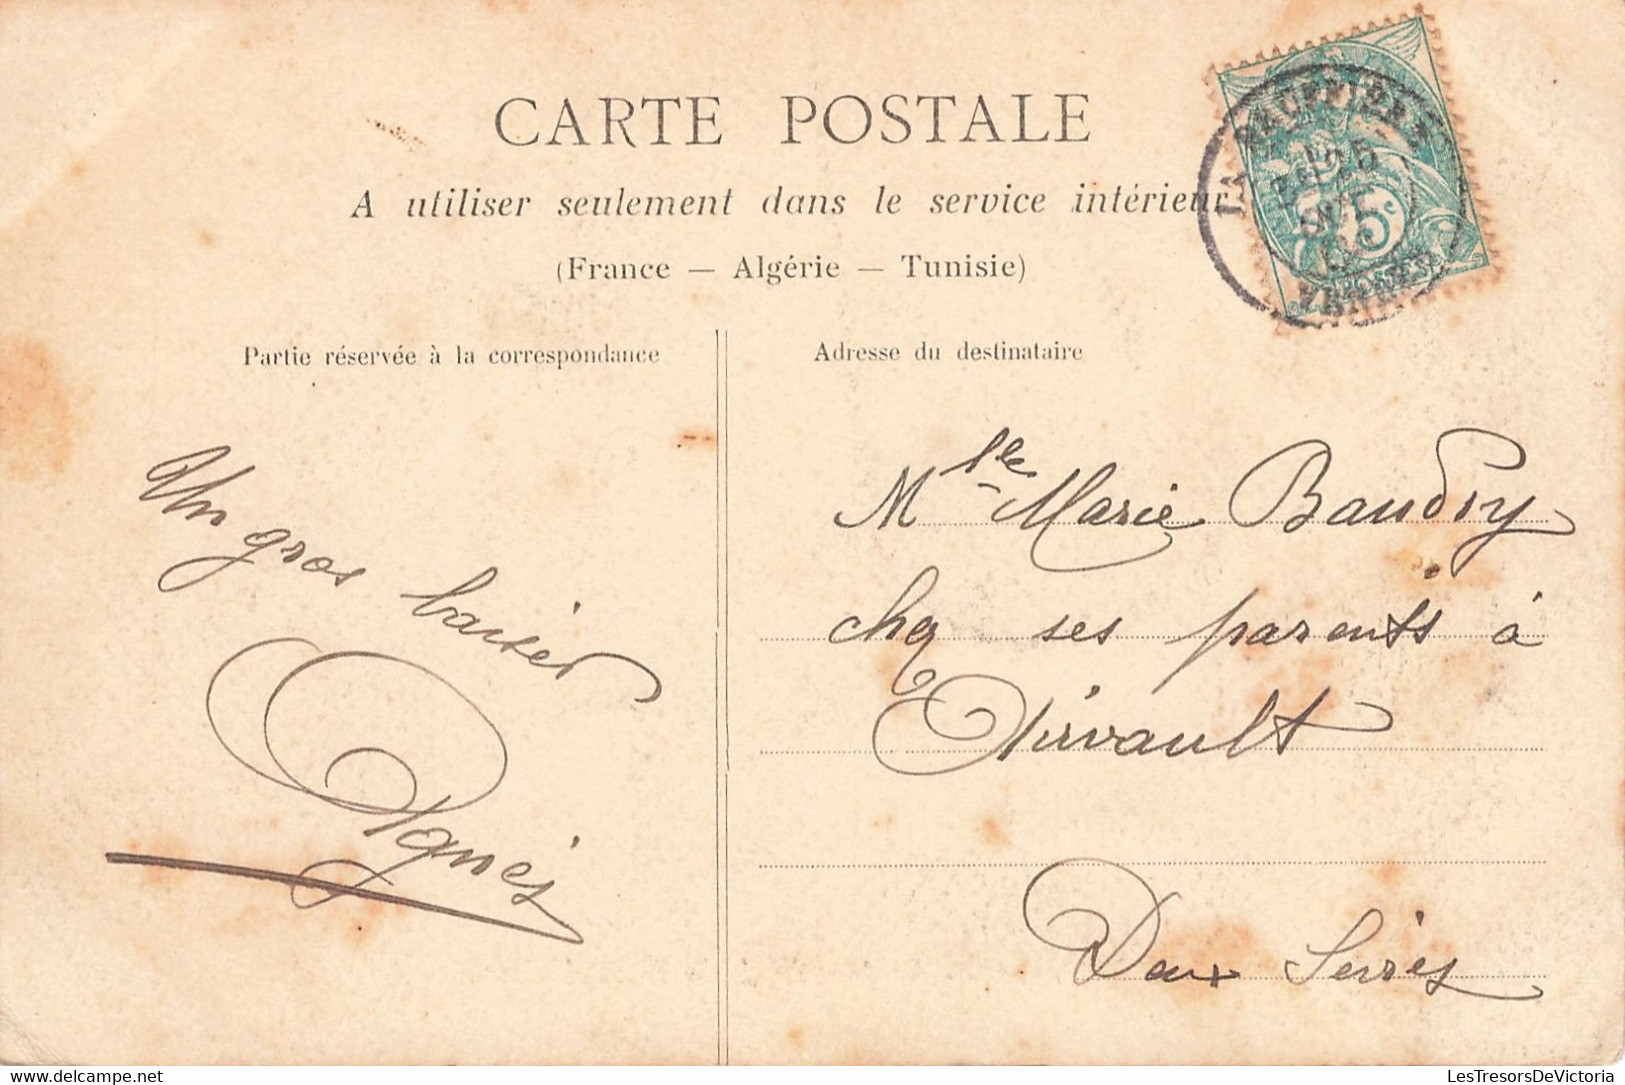 CARTE POSTALE
A utiliser seulement dans le service intérieur
(France — Algérie — Tunisie)
Partie réservée à la correspondance
Adresse du destinataire
Un gros baiser
Agnès
Mlle Marie Baudry
chez ses parents à
Airvault
Deux Sèvres
5c
POSTES
LesTresorsDeVictoria